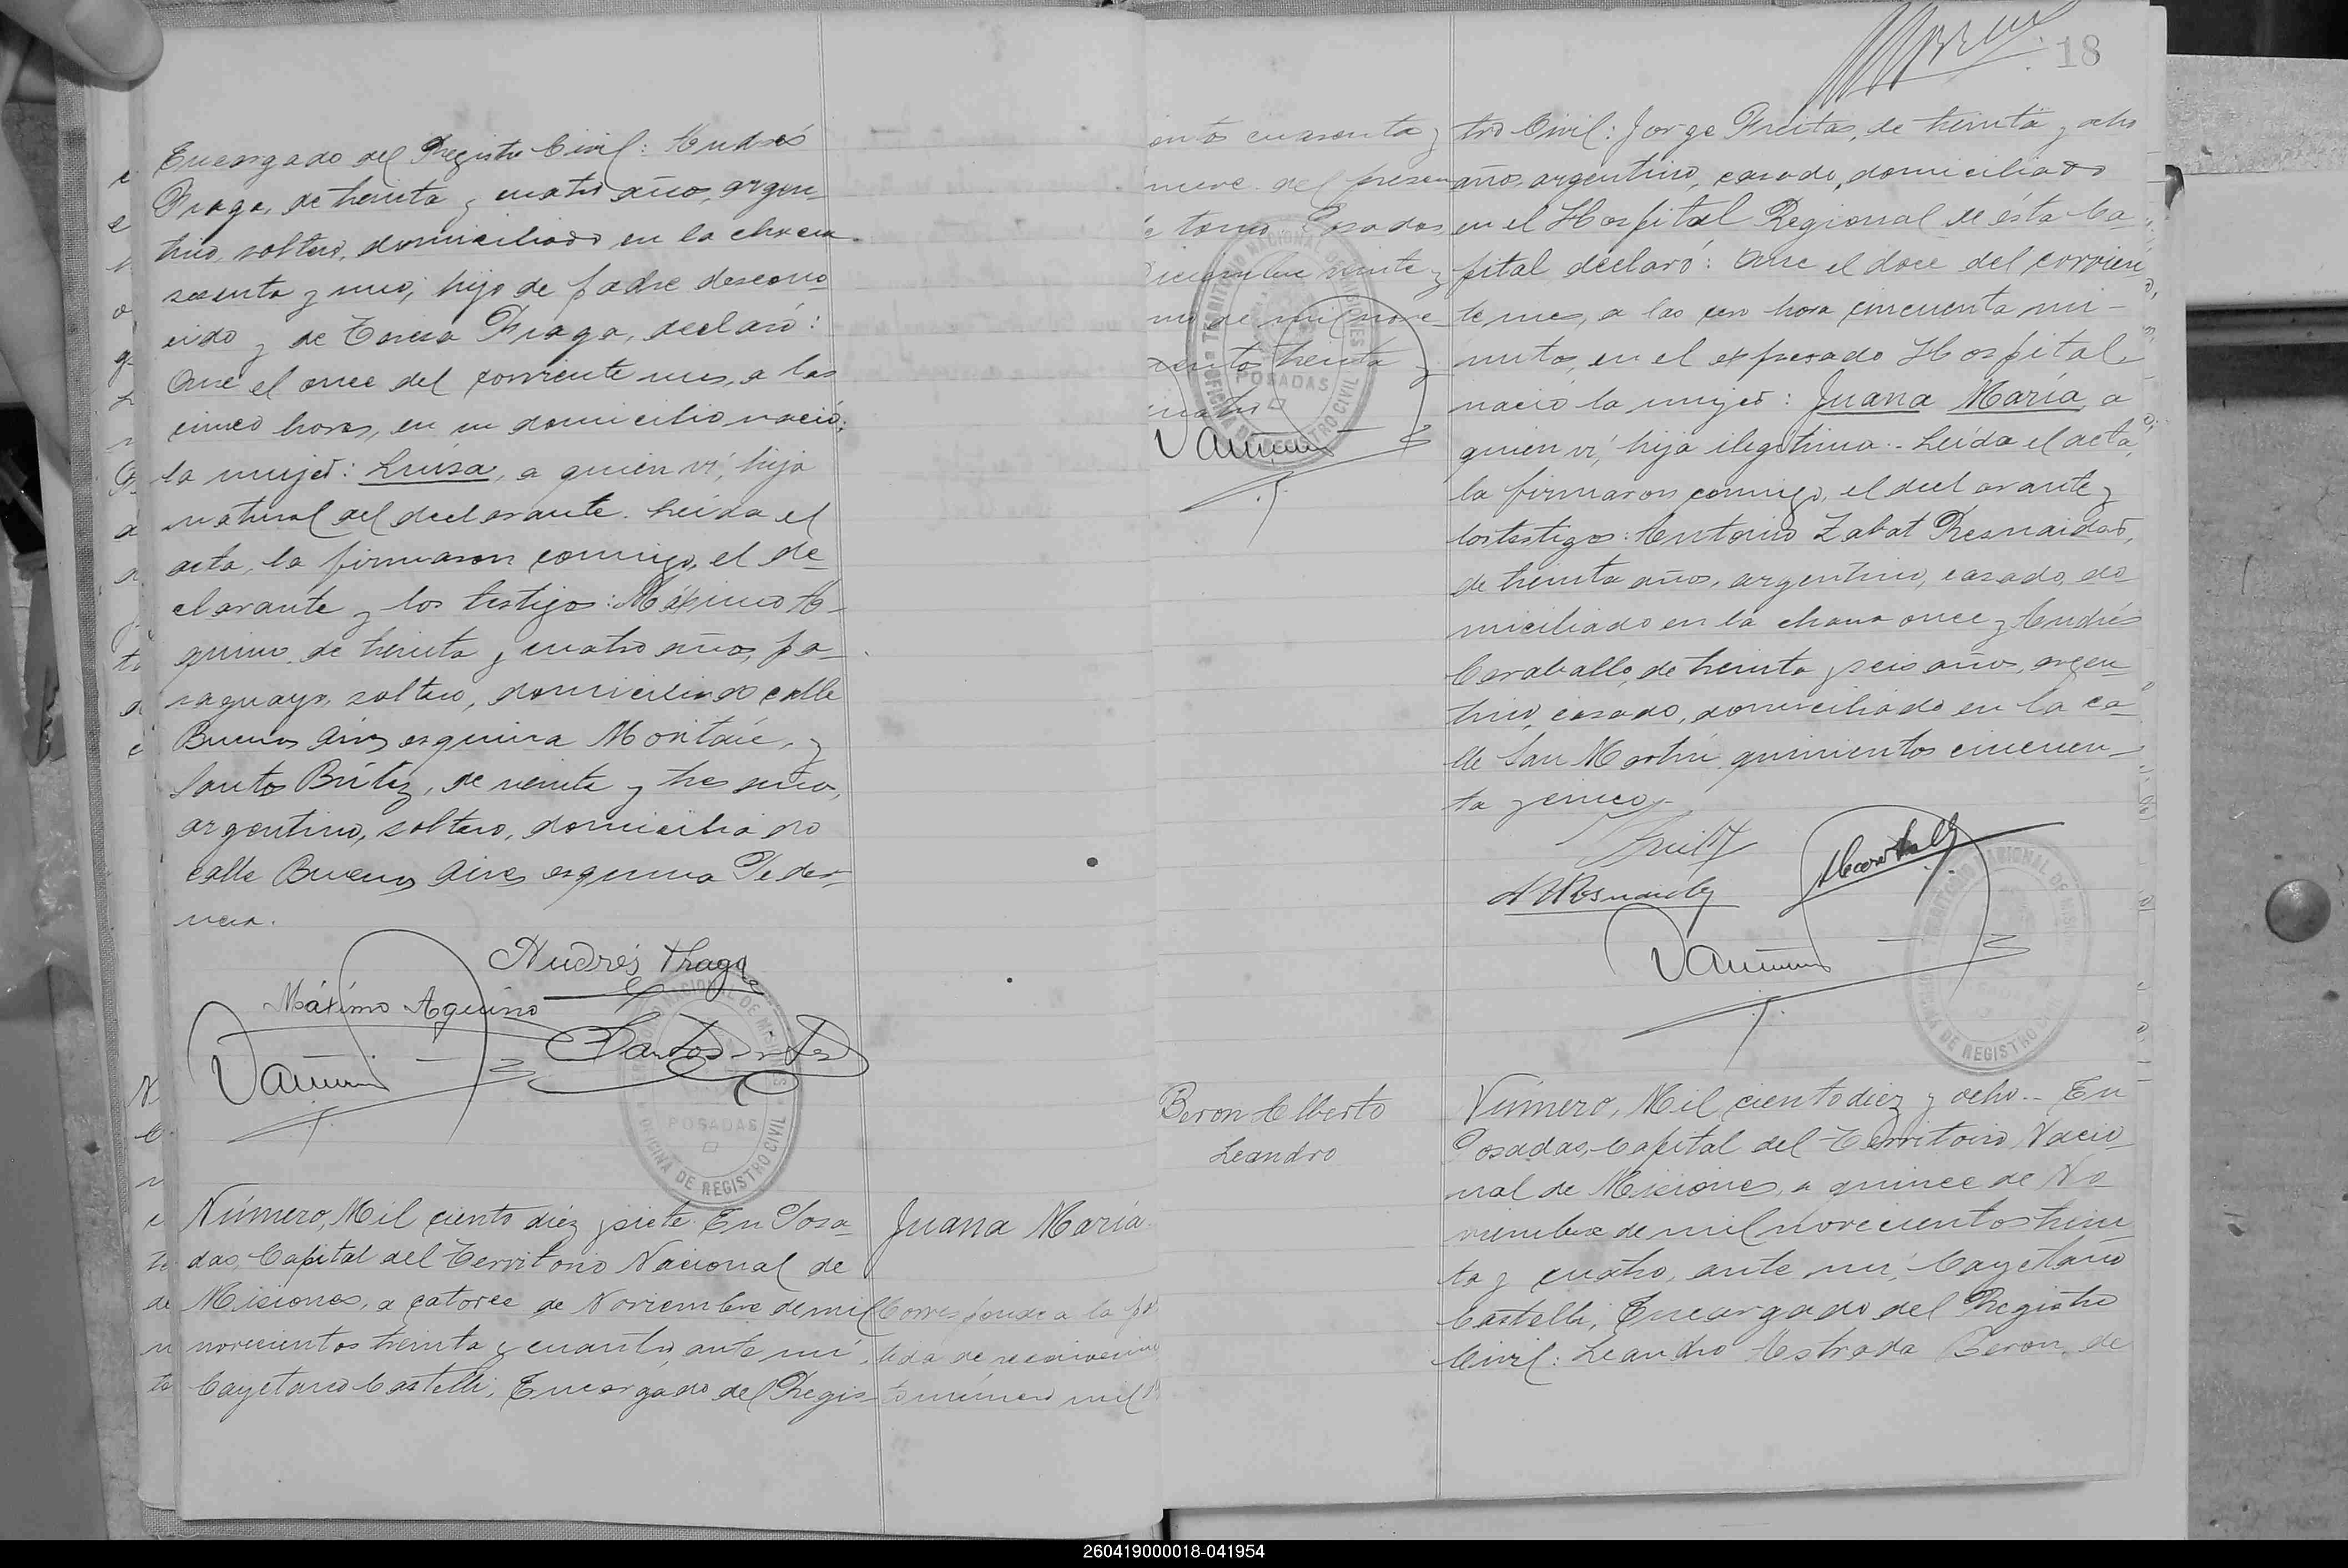 Encargado del Registro Civil: Andrés
Fraga, de treinta y cuatro años, argen-
tino, soltero, domiciliado en la chacra
sesenta y uno; hijo de padre descono
cido y de Teresa Fraga, declaró:
Que el once del corriente mes, a las
cinco horas, en su domicilio nació:
la mujer: Luisa, a quien ví, hija
natural del declarante. Leída el
acta, la firmaron conmigo, el de-
clarante y los testigos: Máximo A-
quino, de treinta y cuatro años, pa-
raguayo, soltero, domiciliado calle
Buenos Aires esquina
Santos Brítez, de veinte y tres años,
argentino, soltero, domiciliado
calle Buenos Aires esquina Feder-
Andrés Fraga
Máximo Aquino
Santos
TERRITORIO NACIONAL DE MISIONES
POSADAS
OFICINA DE REGISTRO CIVIL
Número, Mil ciento diez y siete. En Posa-
das, Capital del Territorio Nacional de
Misiones, a catorce de Noviembre de mil
novecientos treinta y cuatro, ante mí
Cayetano Castelli, Encargado del Regis-
Juana María
Corresponde a la
tida de reconocimien
to número mil
18
entos cuarenta y
nueve del presen
e tomo. Posadas,
Diciembre veinte y
no de mil nove-
cientos treinta y
cuatro
TERRITORIO NACIONAL DE MISIONES
POSADAS
OFICINA DE REGISTRO CIVIL
tro Civil: Jorge Freitas, de treinta y ocho
años, argentino, casado, domiciliado
en el Hospital Regional de ésta Ca-
pital declaró: Que el doce del corrien
te mes, a las una hora cincuenta mi-
nutos, en el expresado Hospital,
nació la mujer: Juana María, a
quien ví, hija ilegítima.- Leída el acta,
la firmaron conmigo, el declarante y
los testigos: Antonio Zabat Resnaider,
de treinta años, argentino, casado, do
miciliado en la chacra once y Andrés
Caraballo, de treinta y seis años, argen
tino, casado, domiciliado en la ca-
lle San Martín quinientos cincuen-
ta y cinco.-
TERRITORIO NACIONAL DE MISIONES
OFICINA DE REGISTRO CIVIL
Beron Alberto
Leandro
Número, Mil ciento diez y ocho.- En
Posadas, Capital del Territorio Nacio
nal de Misiones, a quince de No
viembre de mil novecientos trein
ta y cuatro, ante mí, Cayetano
Castelli, Encargado del Registro
Civil: Leandro Estrada Beron, de
260419000018-041954